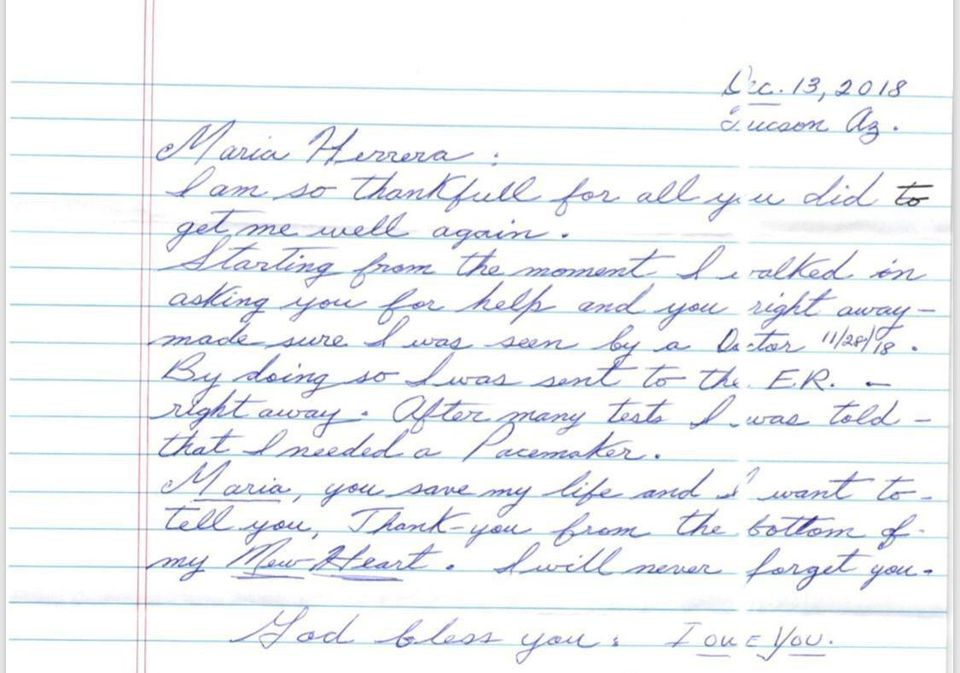 Dec. 13, 2018
Tucson Az.
Maria Herrera :
I am so thankfull for all you did to
get me well again.
Starting from the moment I walked in
asking you for help and you right away-
made sure I was seen by a Doctor 11/28/18.
By doing so I was sent to the E.R. -
right away. After many tests I was told -
that I needed a Pacemaker.
Maria, you save my life and I want to-
tell you, Thank-you from the bottom of-
my New Heart. I will never forget you.
God bless you: I OUE YOU.